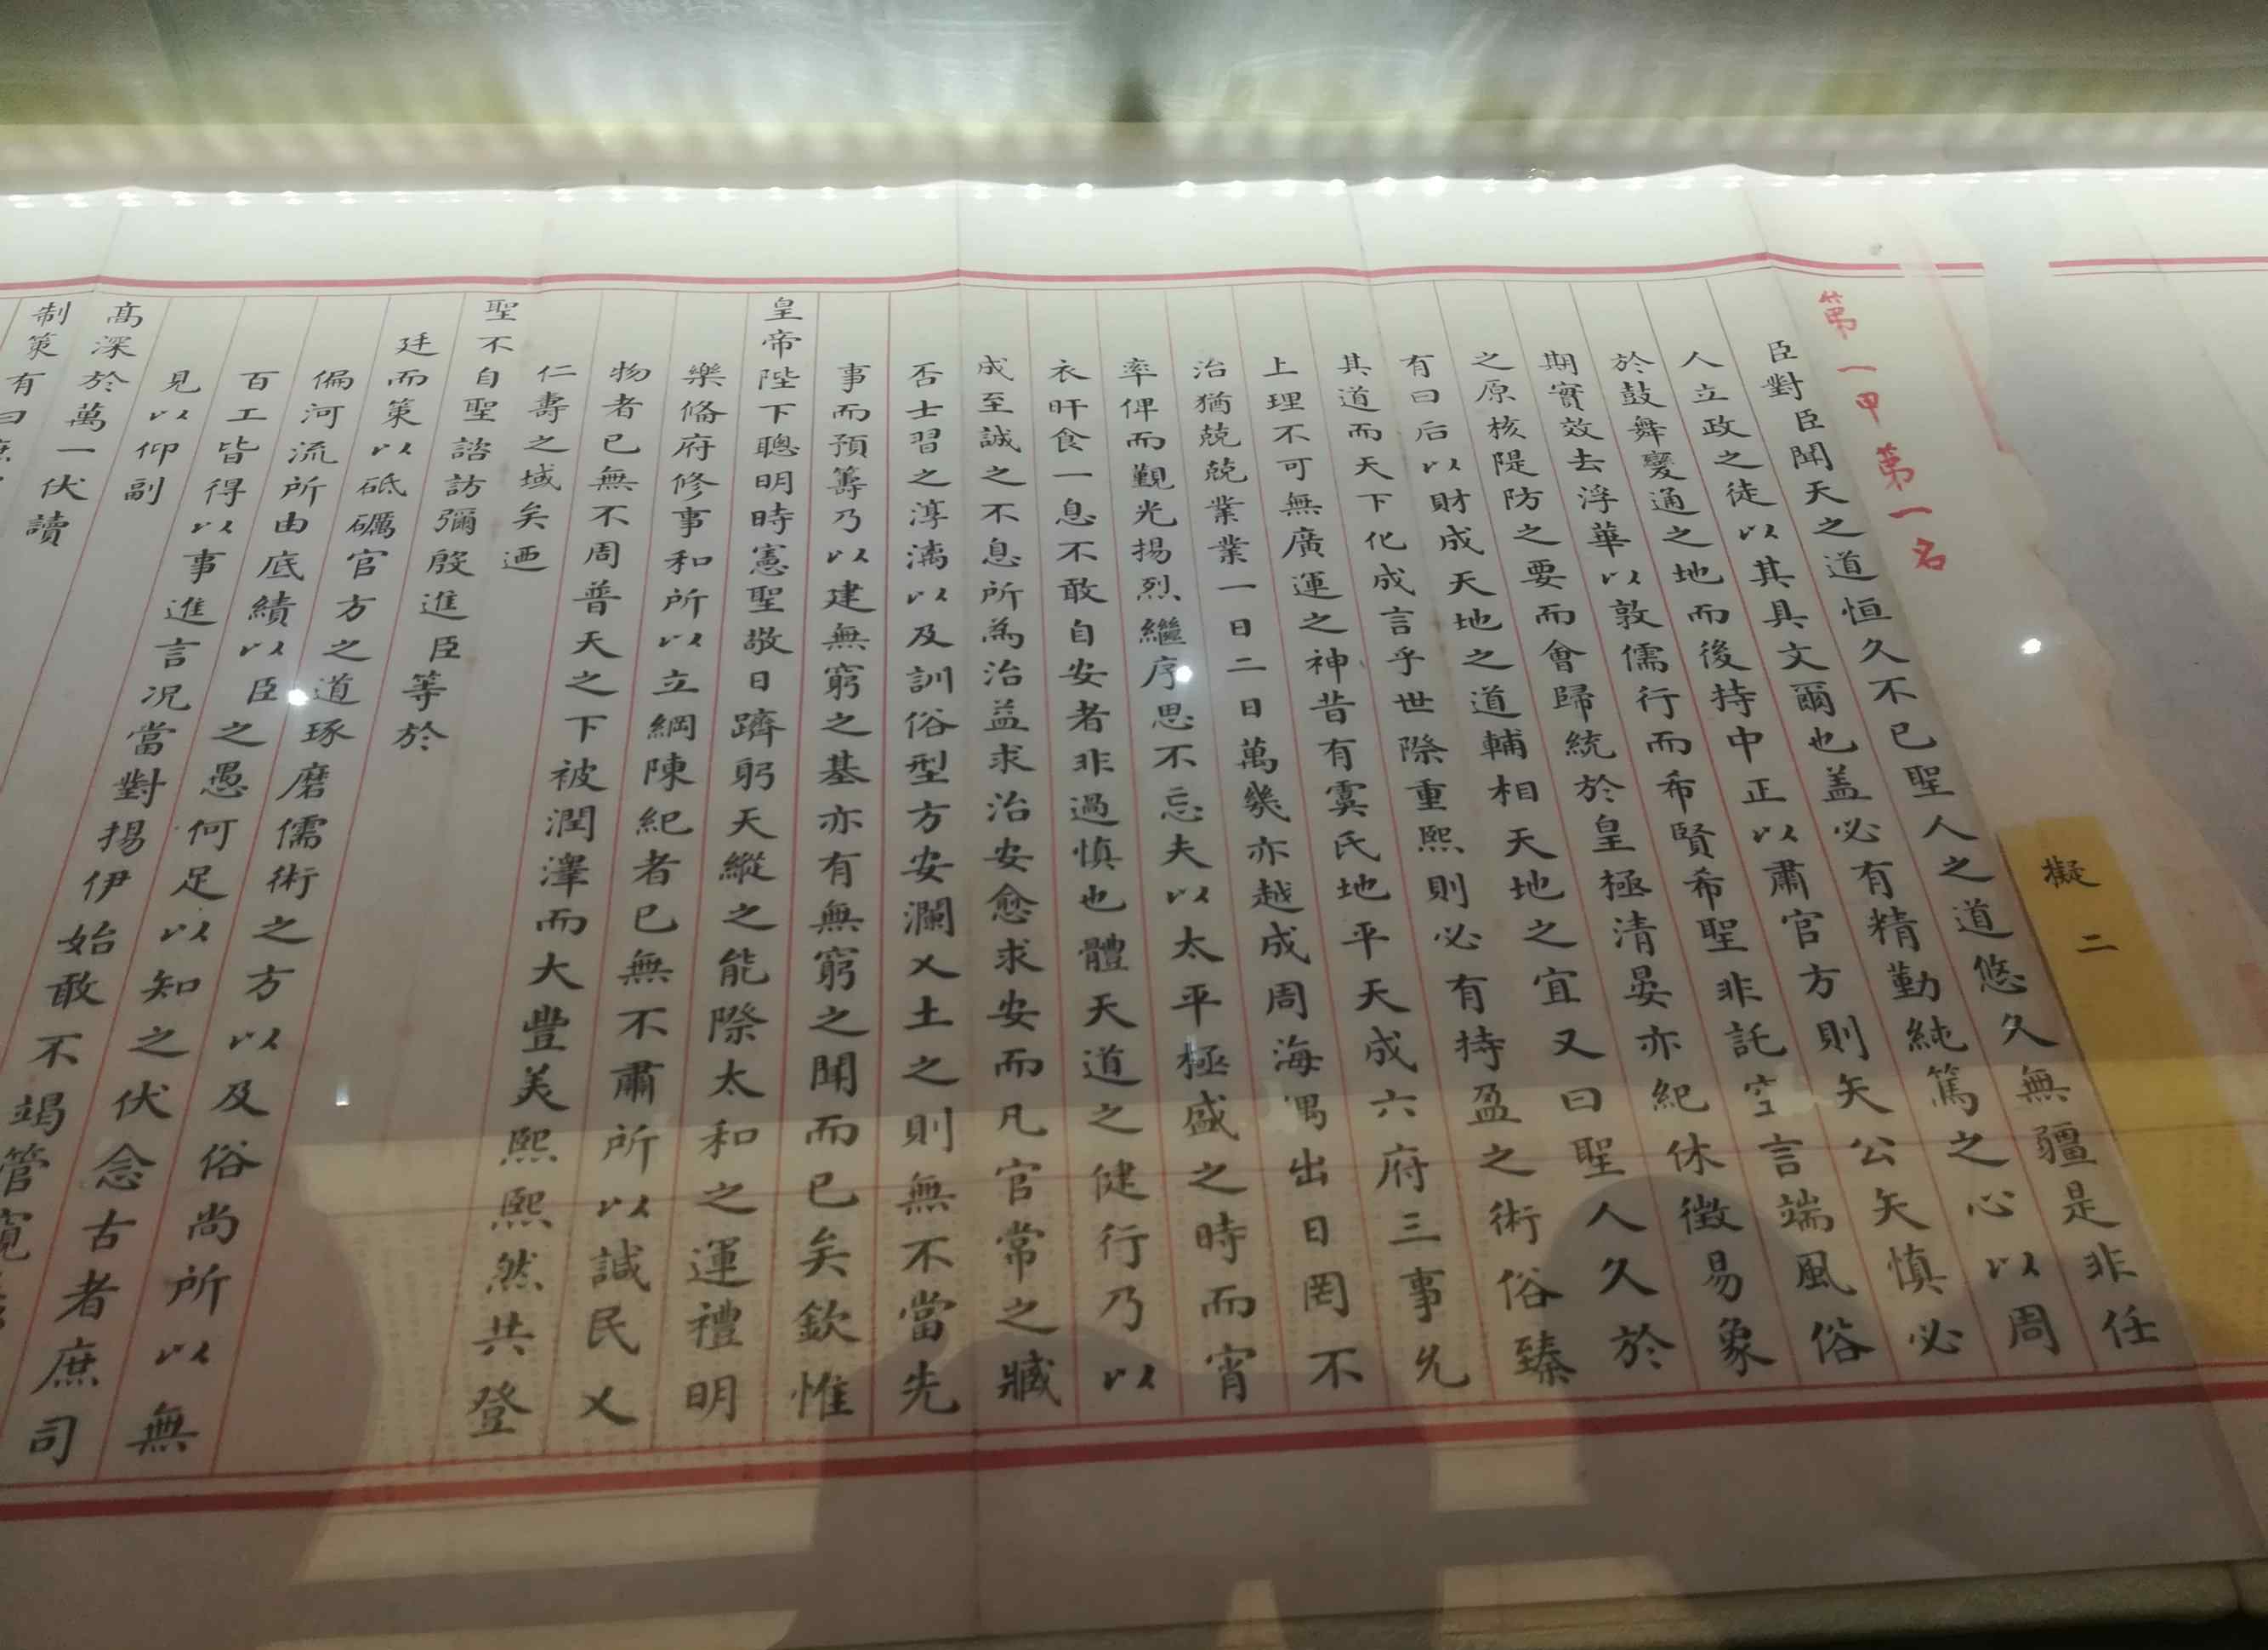 擬二
第一甲第一名
臣對臣聞天之道恒久不已聖人之道悠久無疆是非任
人立政之徒以其具文爾也盖必有精勤純篤之心以周
於鼓舞變通之地而後持中正以肅官方則矢公矢慎必
期實效去浮華以敦儒行而希賢希聖非託空言端風俗
之原核隄防之要而會歸統於皇極清晏亦紀休徵易象
有曰后以財成天地之道輔相天地之宜又曰聖人久於
其道而天下化成言乎世際重熙則必有持盈之術俗臻
上理不可無廣運之神昔有虞氏地平天成六府三事允
治猶兢兢業業一日二日萬幾亦越成周海隅出日罔不
率俾而覲光揚烈繼序思不忘夫以太平極盛之時而宵
衣旰食一息不敢自安者非過慎也體天道之健行乃以
成至誠之不息所為治益求治安愈求安而凡官常之臧
否士習之淳漓以及訓俗型方安瀾乂土之則無不當先
事而預籌乃以建無窮之基亦有無窮之聞而已矣欽惟
皇帝陛下聰明時憲聖敬日躋躬天縱之能際太和之運禮明
樂俻府修事和所以立綱陳紀者已無不肅所以諴民乂
物者已無不周普天之下被潤澤而大豐美熙熙然共登
仁壽之域矣迺
聖不自聖諮訪彌殷進臣等於
廷而策以砥礪官方之道琢磨儒術之方以及俗尚所以無
偏河流所由底績以臣之愚何足以知之伏念古者庶司
百工皆得以事進言况當對揚伊始敢不竭管
見以仰副
高深於萬一伏讀
制策有曰